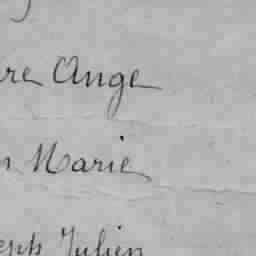 re Ange
n Marie
eph Julien